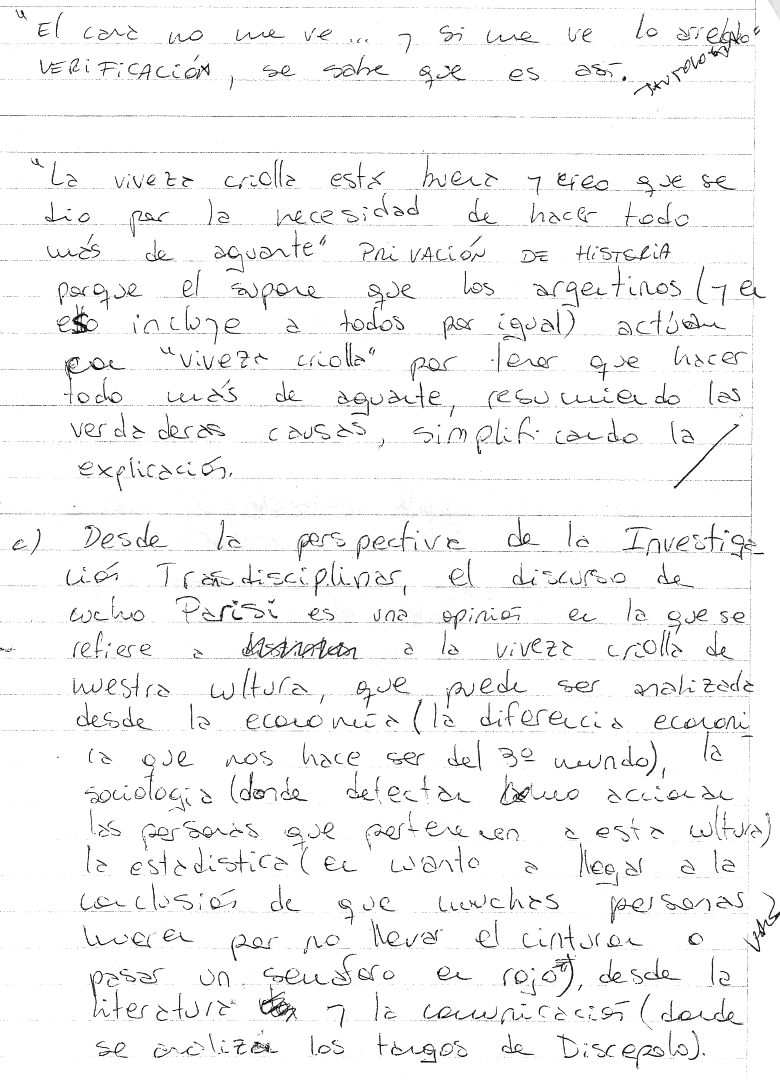 "El cana no me ve... y si me ve lo arreglo"
VERIFICACIÓN, se sabe que es así. TAUTOLOGÍA
"La viveza criolla está buena y creo que se
dio por la necesidad de hacer todo
más de aguante" PRIVACIÓN DE HISTERIA
porque el supone que los argentinos (y en
eso incluye a todos por igual) actúan
con "viveza criolla" por tener que hacer
todo más de aguante, resumiendo las
verdaderas causas, simplificando la
explicación.
c) Desde la perspectiva de la Investiga-
ción Transdisciplinar, el discurso de
Lucho Parisi es una opinión en la que se
refiere a a la viveza criolla de
nuestra cultura, que puede ser analizada
desde la economía (la diferencia económi
ca que nos hace ser del 3º mundo), la
sociología (donde detectan como accionan
las personas que pertenecen a esta cultura)
la estadística (en cuanto a llegar a la
conclusión de que muchas personas
mueren por no llevar el cinturon o
pasar un semáforo en rojo), desde la
literatura y la comunicación (donde
se analiza los tangos de Discepolo).